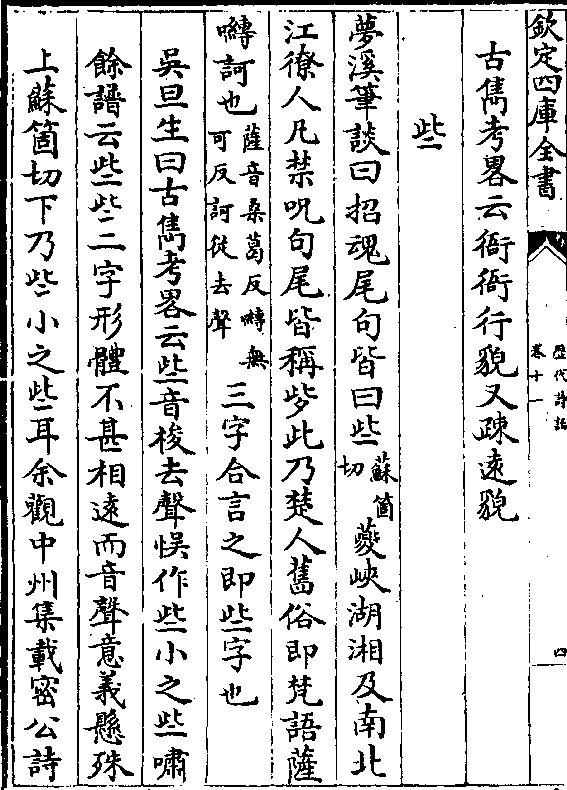 欽定四庫全書
歷代詩話
卷十一
四
古雋考畧云衙衙行貌又疎遠貌
些
夢溪筆談曰招魂尾句皆曰些蘇箇切夔峽湖湘及南北
江獠人凡禁呪句尾皆稱些此乃楚人舊俗即梵語薩
嚩訶也薩音桑葛反嚩無可反訶從去聲三字合言之即些字也
吳旦生曰古雋考畧云些音梭去聲悞作些小之些嘯
餘譜云些些二字形體不甚相遠而音聲意義懸殊
上蘇箇切下乃些小之些耳余觀中州集載密公詩